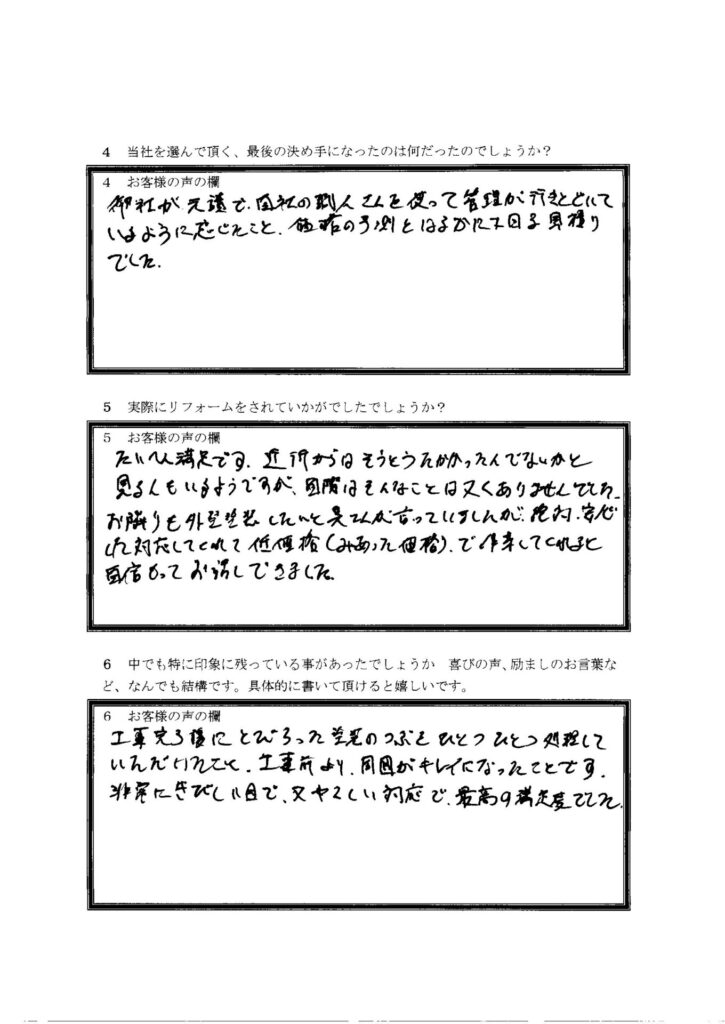 4 当社を選んで頂く、最後の決め手になったのは何だったのでしょうか？
4 お客様の声の欄
御社が元請で、自社の職人さんを使って管理が行きとどいて
いるように感じたこと、価格の予測とはるかに下回る見積り
でした。
5 実際にリフォームをされていかがでしたでしょうか？
5 お客様の声の欄
たいへん満足です。近所からはそうとうたかかったんでないかと
見る人もいるようですが、実際はそんなことは又くありませんでした。
お隣りも外壁塗装したいと奥さんが言っていましたが、絶対、安心
した対応してくれて低価格（みあった価格）、で作業してくれると
自信もってお話しできました。
6 中でも特に印象に残っている事があったでしょうか 喜びの声、励ましのお言葉な
ど、なんでも結構です。具体的に書いて頂けると嬉しいです。
6 お客様の声の欄
工事完了後にとびちった塗装のつぶをひとつひとつ処理して
いただけたこと、工事前より、周囲がキレイになったことです。
非常にきびしい目で、又やさしい対応で、最高の満足度でした。